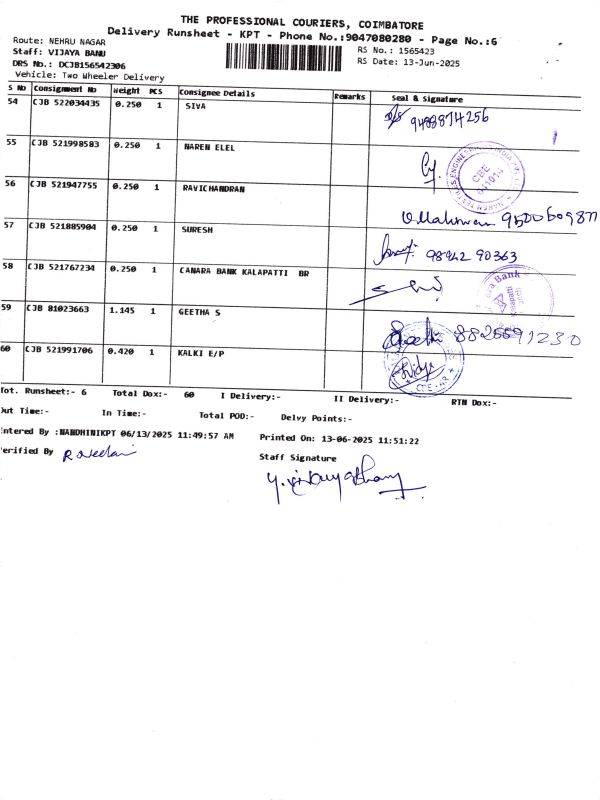 THE PROFESSIONAL COURIERS, COIMBATORE
Delivery Runsheet - KPT - Phone No.:9047080280 - Page No.:6
Route: NEHRU NAGAR
RS No.: 1565423
Staff: VIJAYA BANU
RS Date: 13-Jun-2025
DRS No.: DCJB156542306
Vehicle: Two Wheeler Delivery
S No Consignment No Weight PCS Consignee Details Remarks Seal & Signature
54 CJB 522034435 0.250 1 SIVA 9488874256
55 CJB 521998583 0.250 1 NAREN ELEL CBE
56 CJB 521947755 0.250 1 RAVICHANDRAN
57 CJB 521885904 0.250 1 SURESH 98942 90363
58 CJB 521767234 0.250 1 CANARA BANK KALAPATTI BR Bank
59 CJB 81023663 1.145 1 GEETHA S 8826591230
60 CJB 521991706 0.420 1 KALKI E/P Vidya
Tot. Runsheet:- 6 Total Dox:- 60 I Delivery:- II Delivery:- RTN Dox:-
Out Time:- In Time:- Total POD:- Delvy Points:-
Entered By :NANDHINIKPT 06/13/2025 11:49:57 AM Printed On: 13-06-2025 11:51:22
Verified By
Staff Signature